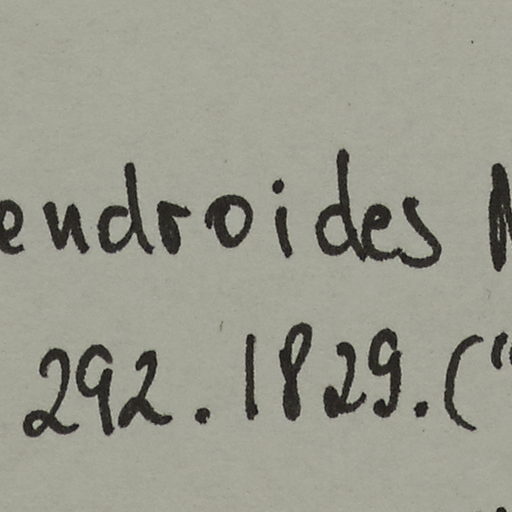 endroides
292.1829.("